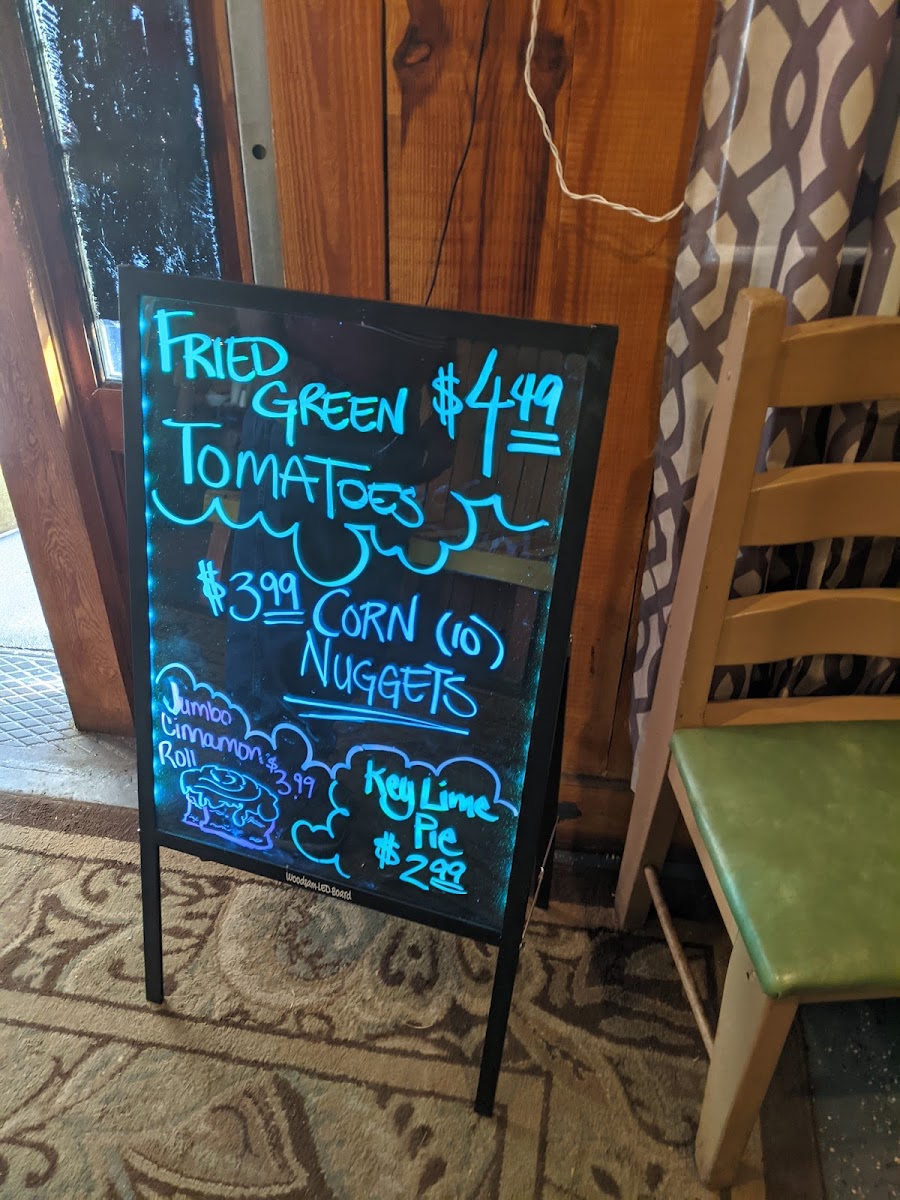 FRIED
GREEN $4.49
TOMATOES
$3.99 CORN (10)
NUGGETS
Jumbo
Cinnamon $3.99
Roll
Key Lime
Pie
$2.99
Woodsam-LED-Board